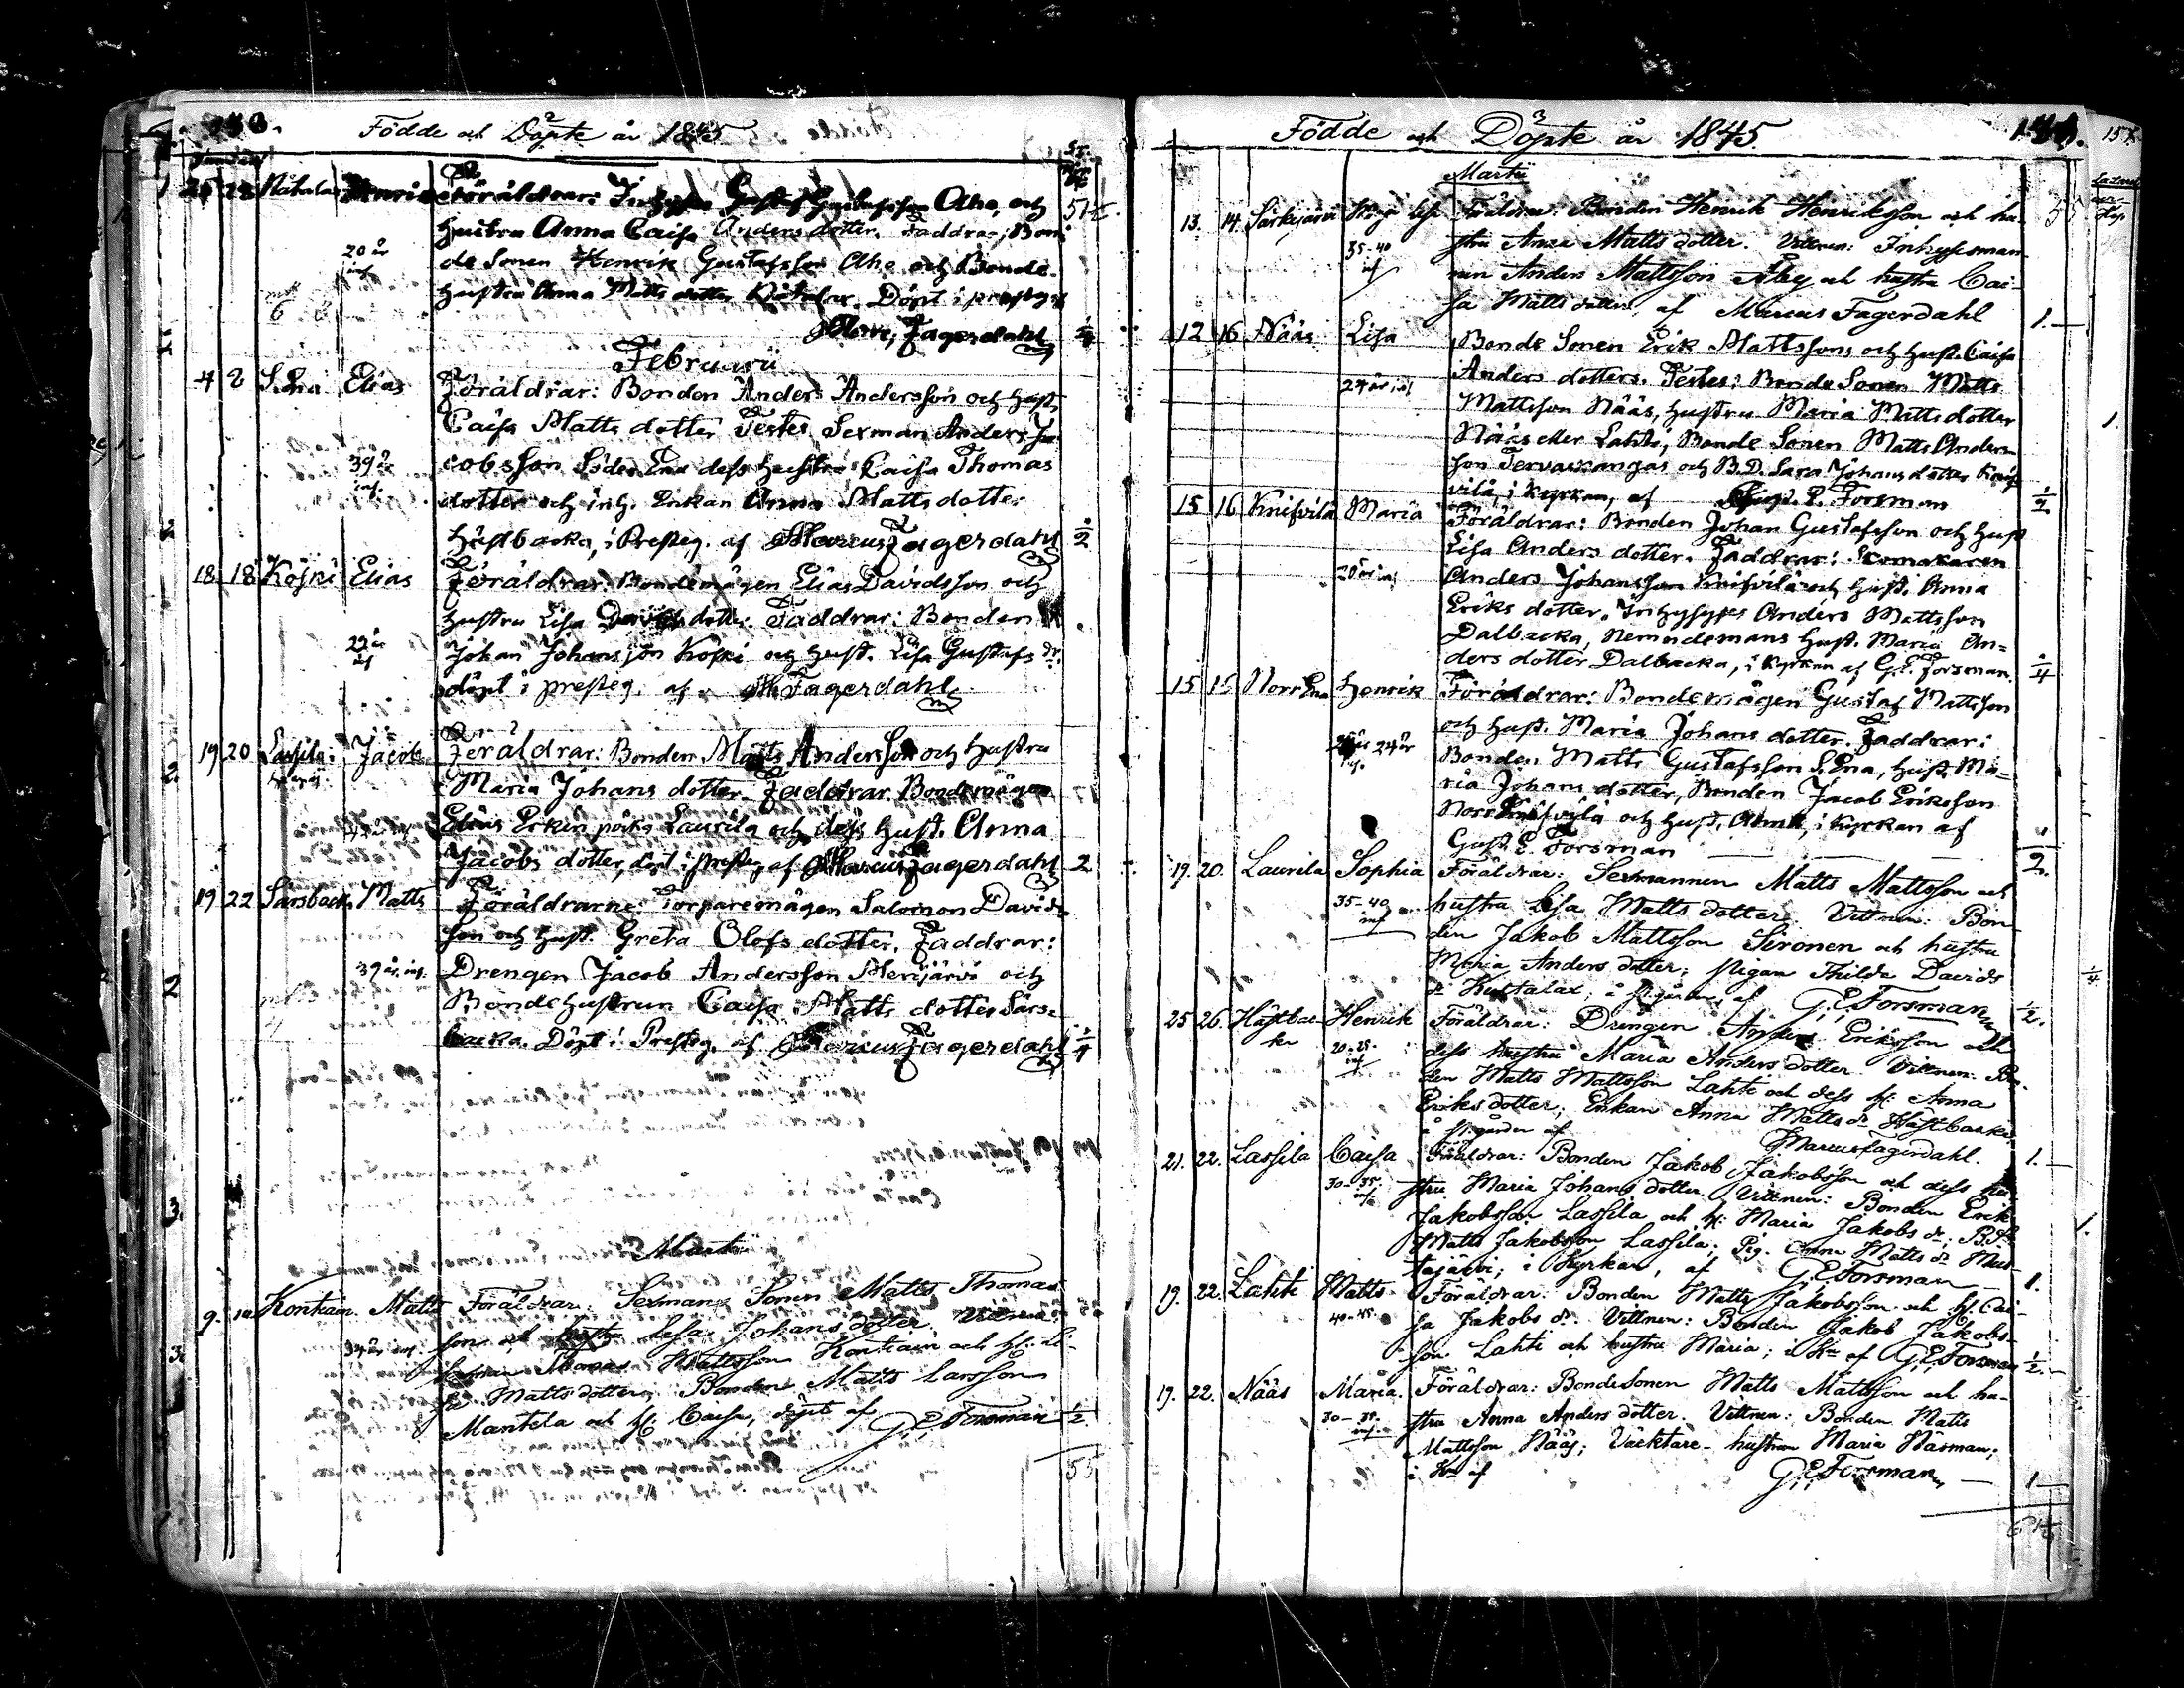 Födde och Döpte år 1845
Föräldrar: Inhyses Gustaf Gustafsson Aho, och
hustru Anna Caisa Anders dotter. Faddrar; Bon
20 år de Sonen Henrik Gustafsson Aho och Bonde-
hustru Anna Matts dotter Döpt i
Fagerdahl
Februarii
4 S. Ena Elias Föräldrar: Bonden Anders Andersson och hust.
Caisa Matts dotter Testes Sexman Anders Ja
39 år cobsson Söder Ena dess hustru Caisa Thomas
inf. dotter och inh. Enkan Anna Matts dotter
Hästbacka, i Presteg. af Marcus Fagerdahl
18 18 Koski Elias Föräldrar: Bondemågen Elias Davidsson och
hustru Lisa Davids dotter. Faddrar: Bonden
Johan Johansson Koski och hust. Lisa Gustafs dr.
döpt i presteg. af M Fagerdahl
19 20 Jacob Föräldrar: Bonden Matts Andersson och hustru
Maria Johans dotter. Faddrar Bondemågen
Elias Laurila och dess hust. Anna
Jacobs dotter, döpt i presteg. af Marcus Fagerdahl 2
19 22 Särsback. Matts Föräldrarne: Torparemågen Salomon Davids
son och hust. Greta Olofs dotter. Faddrar:
39 år. inf. Drengen Jacob Andersson Merijärvi och
Bondehustrun Caisa Matts dotter Särs=
backa. Döpt i Presteg. af Marcus Fagerdahl
Martii
9. 10 Kontiain Matts Föräldrar: Sexmans Sonen Matts Thomas
34 år inf. son och hustru Lisa Johans dotter. Vittnen:
Sexman Thomas Mattsson Kontiain och H: Li-
sa Matts dotter; Bonden Matts Larsson
Mantila och H: Caisa, döpt af G. E. Forsman ½
55
Födde och Döpte år 1845.
Martii
13. 14. Särkijärvi Föräldrar: Bonden Henrik Henriksson och hu-
35-40 stru Anna Matts dotter. Vittnen: Inhysesman
inf nen Anders Mattsson Åby och hustru Cai-
sa Matts dotter, af Marcus Fagerdahl 1.
12 16 Nääs Lisa Bonde Sonen Erik Mattssons och hust. Caisa
24 år inf Anders dotters. Testes: Bonde Sonen Matts
Mattsson Nääs, hustru Maria Matts dotter
Nääs eller Lahti, Bonde Sonen Matts Anders
son Tervakangas och B.D. Sara Johans dotter Knif
vilä, i kyrkan, af Gust. E. Forsman ½
15 16 Knifvilä Maria Föräldrar: Bonden Johan Gustafsson och hust
Lisa Anders dotter. Faddrar:
Anders Johansson Knifvilä och hust. Anna
Eriks dotter. Inhyses Anders Mattsson
Dalbacka, Nemndemans hust. Maria An=
ders dotter Dalbacka, i kyrkan af G. E. Forsman.
15 15 Norr Ena Henrik Föräldrar: Bondemågen Gustaf Mattsson
24 år och hust. Maria Johans dotter. Faddrar:
Bonden Matts Gustafsson S. Ena, hust. Ma=
ria Johans dotter, Bonden Jacob Eriksson
Norr Knifvilä och hust. Anna, i kyrkan af
Gust. E. Forsman
19. 20. Laurila Sophia Föräldrar: Sexmannen Matts Mattsson och
35-40 hustru Lisa Matts dotter. Vittnen: Bon-
inf den Jakob Mattsson Sironen och hustru
Maria Anders dotter; pigan Thilda Davids
dr G. E. Forsman ½.
25 26. Hästbac- Henrik Föräldrar: Drengen Anders Eriksson och
ka 20-25. dess hustru Maria Anders dotter Vittnen: Bon-
inf den Matts Mattsson Lahti och dess H: Anna
Eriks dotter; Enkan Anna Matts dr Hästbacka
Marcus Fagerdahl. 1.
21. 22. Lassila Caisa Föräldrar: Bonden Jakob Jakobsson och dess hu-
30-35. stru Maria Johans dotter. Vittnen: Bonden Erik
inf Jakobsson Lassila och H: Maria Jakobs dr; B.S.
Matts Jakobsson Lassila; Pig. Anna Matts dr Mus-
tajärvi; i Kyrkan, af G. E. Forsman 1.
19. 22. Lahti Matts Föräldrar: Bonden Matts Jakobsson och H. Cai-
40-45. sa Jakobs dr. Vittnen: Bonden Jakob Jakobs-
son Lahti och hustru Maria; i Kn af G. E. Forsman ½.
19. 22. Nääs Maria. Föräldrar: BondeSonen Matts Mattsson och hu-
stru Anna Anders dotter. Vittnen: Bonden Matts
Mattsson Nääs; Väcktare-hustrun Maria Näsman;
i Kn af G. E. Forsman 1